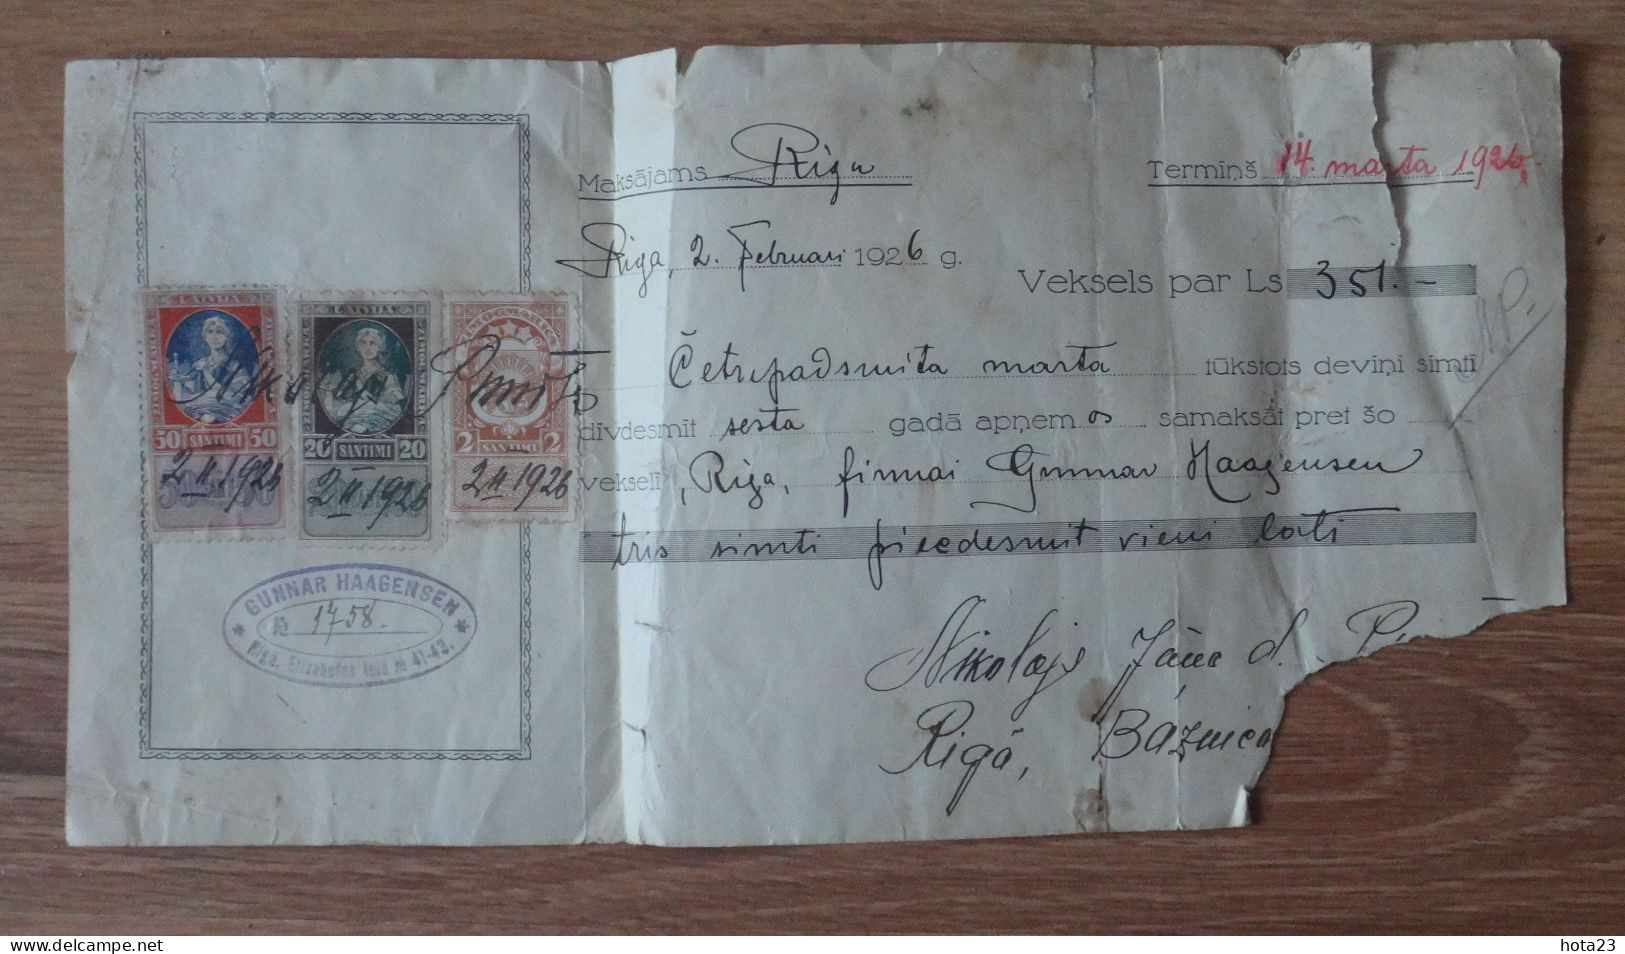 Maksājams Riga
Termiņš 14. marta 1926.
Riga, 2. Februari 1926 g.
Veksels par Ls 351.-
Četrpadsmita marta tūkstots deviņi simti
divdesmit sesta gadā apņemos samaksāt pret šo
vekseli, Riga, firmai Gunnar Haagensen
tris simti piecdesmit vieni lati
Nikolajs Jāņa d.
Rigā, Baznica
LATVIJA
50 SANTIMI 50
2 II 1926
LATVIJA
20 SANTIMI 20
2 II 1926
2 SANTIMI 2
2 II 1926
Nikolajs
GUNNAR HAAGENSEN
№ 1758.
Rīgā, Elizabetes ielā № 41-43.
delcampe.net
hota23